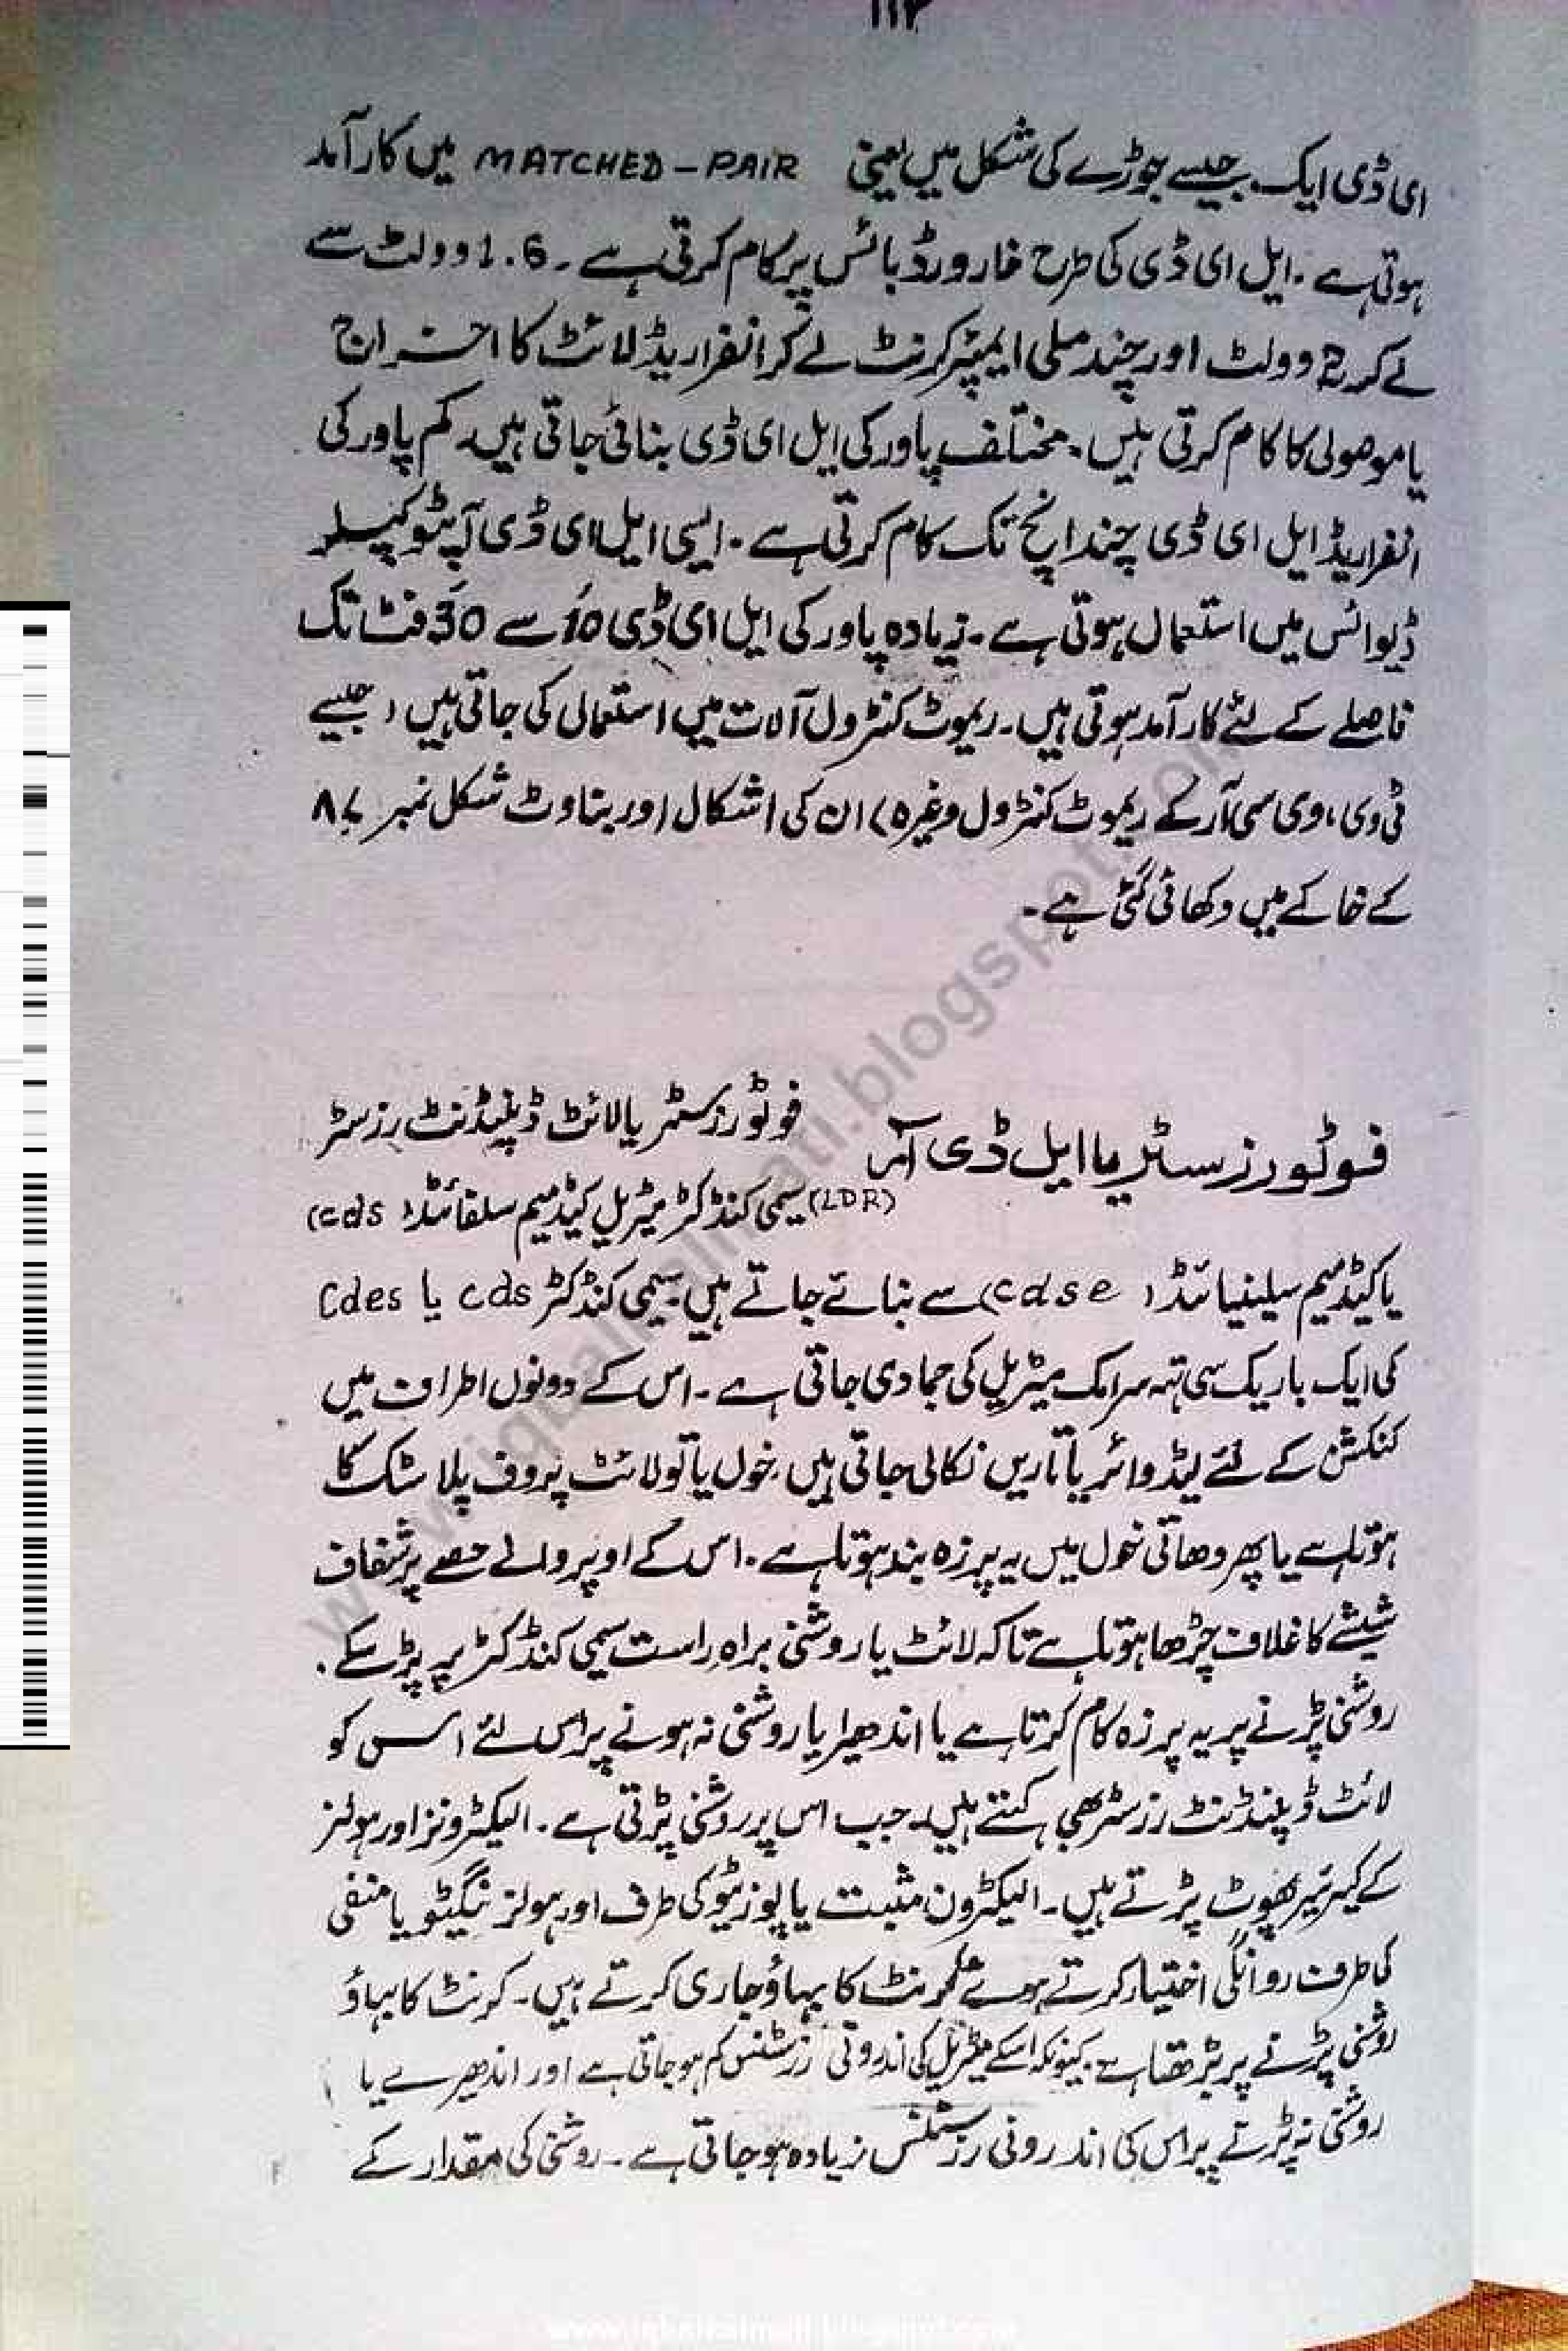 ۱۱۲
ای ڈی ایک جیسے جوڑے کی شکل میں یعنی MATCHED-PAIR میں کار آمد
ہوتی ہے۔ ایل ای ڈی کی طرح فارورڈ بائس پر کام کرتی ہے۔ 1.6 وولٹ سے
لے کر 2 وولٹ اور چند ملی ایمپئر کرنٹ لے کر انفراریڈ لائٹ کا اخراج
یا موصولی کا کام کرتی ہیں۔ مختلف پاور کی ایل ای ڈی بنائی جاتی ہیں۔ کم پاور کی
انفراریڈ ایل ای ڈی چند انچ تک کام کرتی ہے۔ ایسی ایل ای ڈی آپٹو کپلر
ڈیوائس میں استعمال ہوتی ہے۔ زیادہ پاور کی ایل ای ڈی 10 سے 30 فٹ تک
فاصلے کے لئے کار آمد ہوتی ہیں۔ ریموٹ کنٹرول آلات میں استعمال کی جاتی ہیں (جیسے
ٹی وی، وی سی آر کے ریموٹ کنٹرول وغیرہ) ان کی اشکال اور بناوٹ شکل نمبر ۸۷
کے خاکے میں دکھائی گئی ہے۔
فوٹو رزسٹر یا ایل ڈی آر
فوٹو رزسٹر یا لائٹ ڈپینڈنٹ رزسٹر
(LDR) سیمی کنڈکٹر میٹریل کیڈمیم سلفائڈ (cds)
یا کیڈمیم سیلینیائڈ (cdse) سے بنائے جاتے ہیں۔ سیمی کنڈکٹر cds یا Cdes
کی ایک باریک سی تہہ سرامک میٹریل کی جمادی جاتی ہے۔ اس کے دونوں اطراف میں
کنکشن کے لئے لیڈ وائر یا تاریں نکالی جاتی ہیں۔ خول یا تو لائٹ پروف پلاسٹک کا
ہوتا ہے یا پھر دھاتی خول میں یہ پرزہ بند ہوتا ہے۔ اس کے اوپر والے حصے پر شفاف
شیشے کا غلاف چڑھا ہوتا ہے تاکہ لائٹ یا روشنی براہ راست سیمی کنڈکٹر پر پڑ سکے۔
روشنی پڑنے پر یہ پرزہ کام کرتا ہے یا اندھیرا یا روشنی نہ ہونے پر اس لئے اس کو
لائٹ ڈپنڈنٹ رزسٹر بھی کہتے ہیں۔ جب اس پر روشنی پڑتی ہے۔ الیکٹرونز اور ہولز
کے کیرئیر پھوٹ پڑتے ہیں۔ الیکٹرون مثبت یا پوزیٹو کی طرف اور ہولز نگیٹو یا منفی
کی طرف روانگی اختیار کرتے ہوئے کرنٹ کا بہاؤ جاری کرتے ہیں۔ کرنٹ کا بہاؤ
روشنی پڑنے پر بڑھتا ہے۔ کیونکہ اسکے میٹریل کی اندرونی رزسٹنس کم ہو جاتی ہے اور اندھیرے یا
روشنی نہ پڑنے پر اس کی اندرونی رزسٹنس زیادہ ہو جاتی ہے۔ روشنی کی مقدار کے